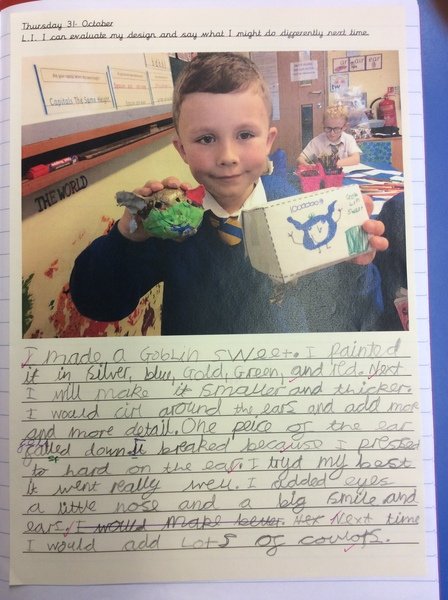 Thursday 31st October
L.I. I can evaluate my design and say what I might do differently next time.
Capitals The Same Height
THE WORLD
I made a Goblin sweet. I Painted
it in Silver, blue, Gold, Green, and red. Next
I will make it smaller and thicker.
I would cirl around the ears and add more
and more detail. One peice of the ear
falled down. It breaked because I pressed
to hard on the ear. I tryd my best
it went really well. I added eyes
a little nose and a big smile and
ears. I would make better. Nex Next time
I would add Lots of coulors.